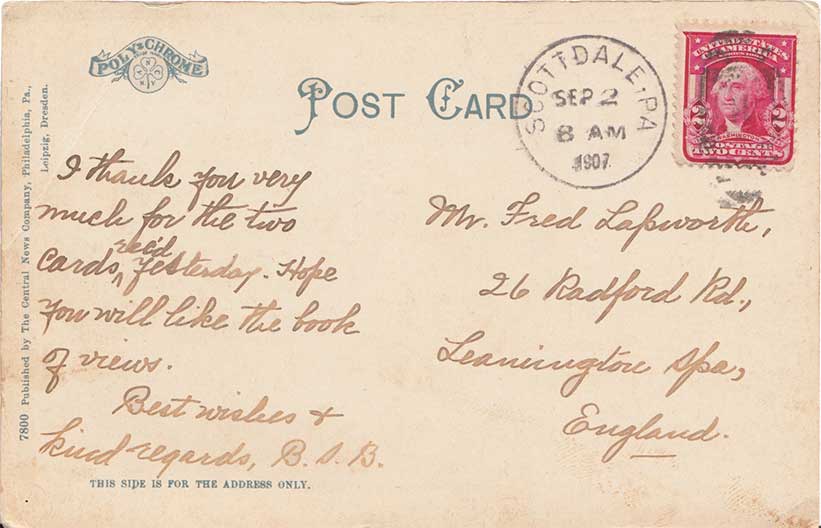 POLY-CHROME
POST CARD
SCOTTDALE, PA
SEP 2
8 AM
1907
UNITED STATES
OF AMERICA
2 2
WASHINGTON
POSTAGE
TWO CENTS
7800 Published by The Central News Company, Philadelphia, Pa.,
Leipzig, Dresden.
I thank you very
much for the two
cards rec'd yesterday. Hope
you will like the book
of views.
Best wishes &
kind regards, B. S. B.
Mr. Fred Lapworth,
26 Radford Rd.,
Leamington Spa,
England.
THIS SIDE IS FOR THE ADDRESS ONLY.